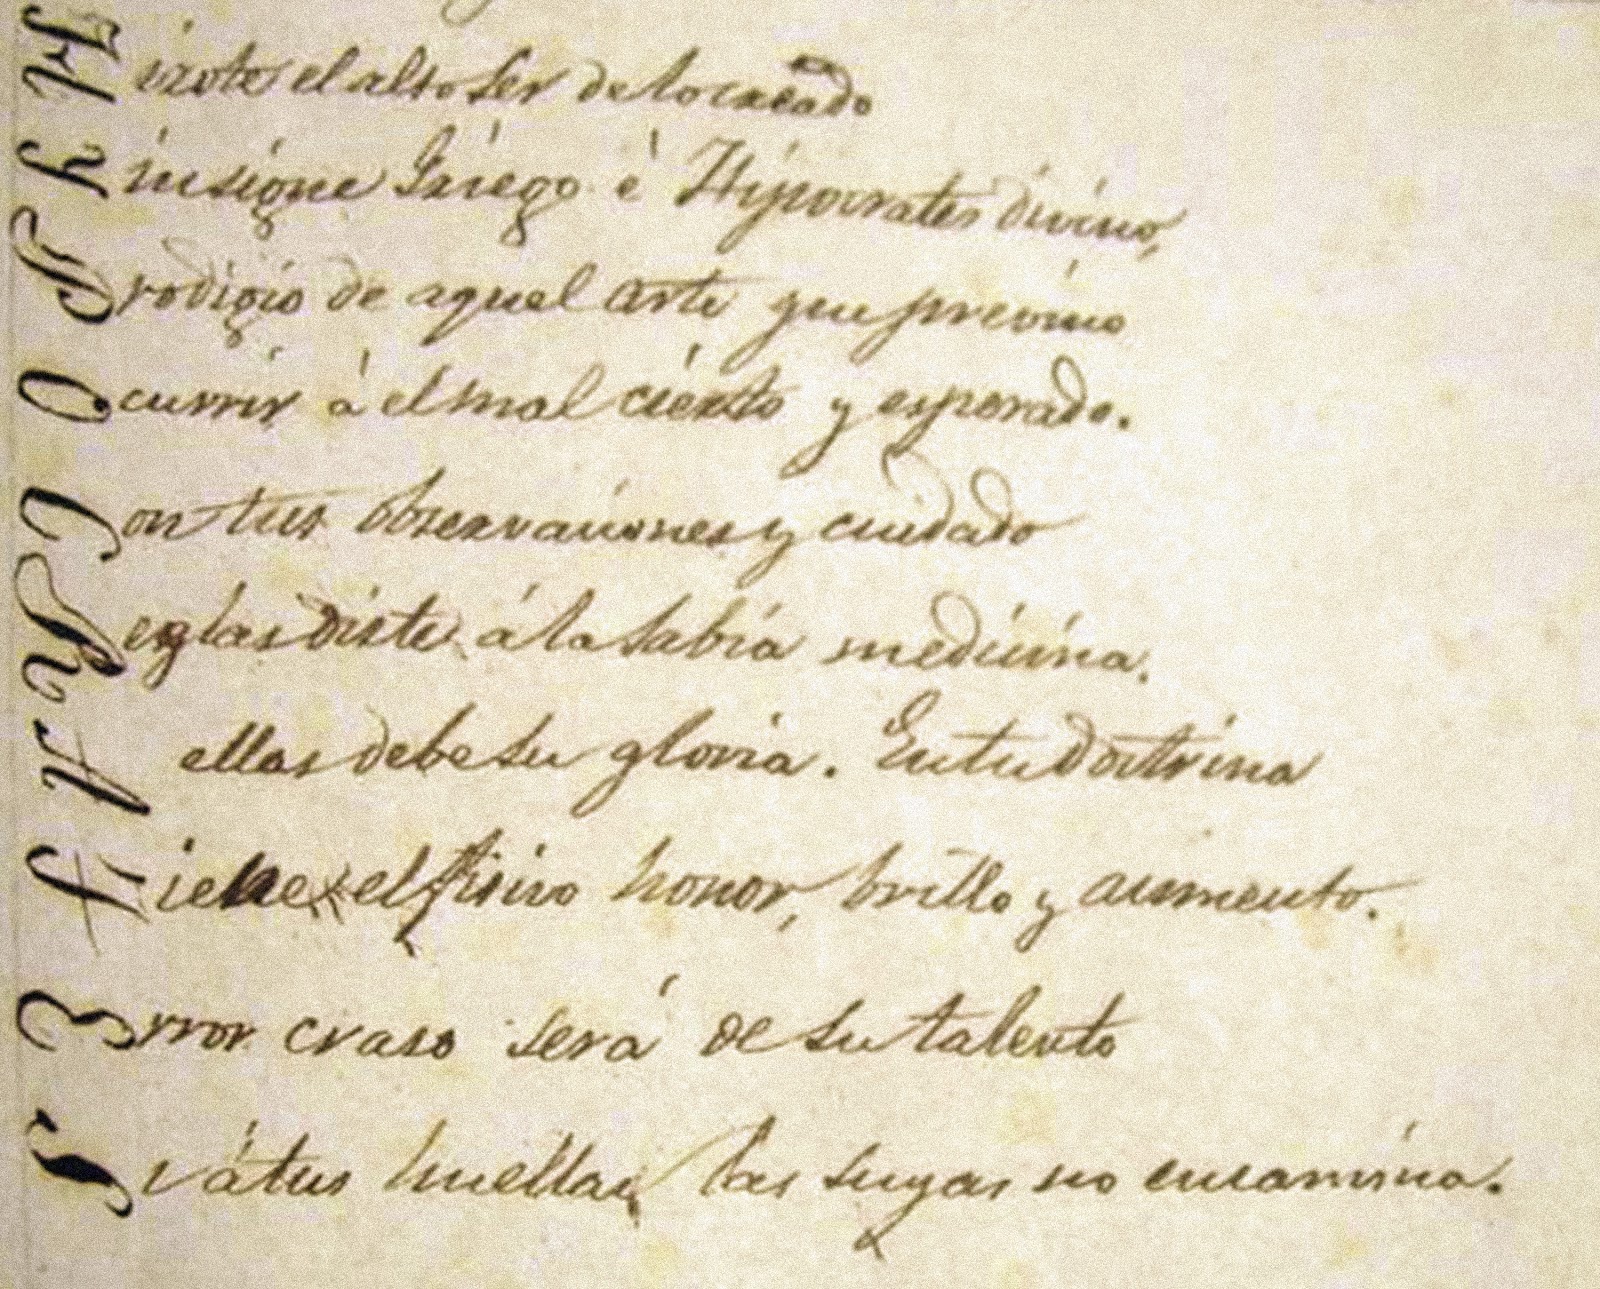 Hizote el alto Ser de lo creado
Y insigne Griego è Hypocrates divino,
Prodigio de aquel arte que previno
Ocurrir á el mal cierto y esperado.
Con tus observaciones y cuidado
Reglas diste á la sabia medicina.
A ellas debe su gloria. En tu Doctrina
Tiene el fisico honor, brillo y aumento.
Error craso será de su talento
Si á tus huellas, las suyas no encamina.